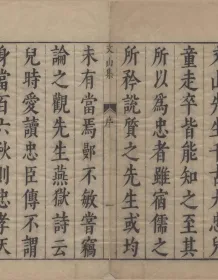 文山先生千古大
童走卒皆能知之至其
所以為忠者雖宿儒之
所矜說質之先生或均
文山集 序
未有當焉鄙不敏嘗竊
論之觀先生燕獄詩云
兒時愛讀忠臣傳不謂
身當百六秋則忠孝天